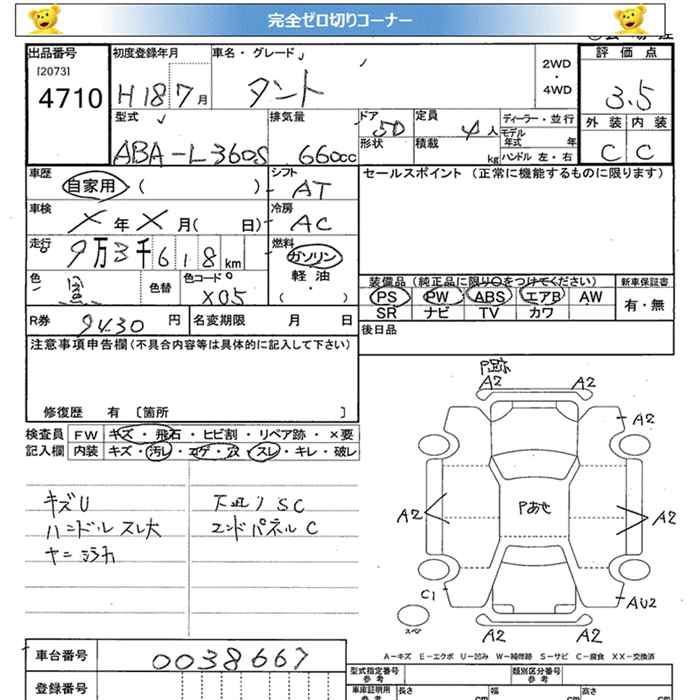 完全ゼロ切りコーナー
出品番号 初度登録年月 車名・グレード 2WD・4WD 評価点
[2073]
4710 H18 7月 タント 3.5
型式 排気量 ドア 定員 ディーラー・並行 外装 内装
ABA-L360S 660cc 5D 4人 モデル年式 年 C C
形状 積載 kg ハンドル 左・右
車歴 シフト セールスポイント (正常に機能するものに限ります)
自家用 ( ) AT
車検 冷房
× 年 × 月( 日) AC
走行 燃料
9万3千618km ガソリン
軽油
( )
色 色替 色コード 装備品 (純正品に限り○をつけてください) 新車保証書
黒 X05 PS PW ABS エアB AW 有・無
SR ナビ TV カワ
R券 9430円 名変期限 月 日 後日品
注意事項申告欄(不具合内容等は具体的に記入して下さい)
修復歴 有 [箇所 ]
検査員 FW キズ・飛石・ヒビ割・リペア跡・×要
記入欄 内装 キズ・汚レ・コゲ・穴・スレ・キレ・破レ
キズU 下廻りSC
ハンドルスレ大 エンドパネルC
P跡
A2 A2
A2
Pあせ
A2 A2
C1 AU2
スペア
A2 A2
A-キズ E-エクボ U-凹み W-補修跡 S-サビ C-腐食 XX-交換済
車台番号 0038667
登録番号
型式指定番号 参考 類別区分番号 参考
車庫証明用 参考 長さ cm 幅 cm 高さ cm